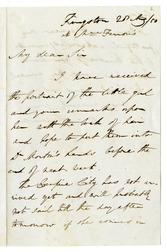 Kingston 28 May
at Mrs
My dear Sir
I have received
the portrait of the little girl
and your remarks upon
her with the lock of hair
and hope to put them into
Dr hands before the
end of next week.
The Empire City has not ar
rived yet and will probably
not sail till the day after
tomorrow if she comes in